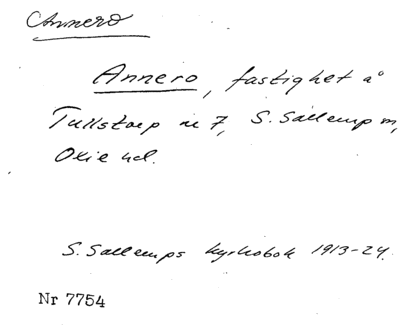 Annero
Annero, fastighet å
Tullstorp nr 7, S. Sallerup sn,
Oxie hd.
S. Sallerups kyrkobok 1913-24.
Nr 7754